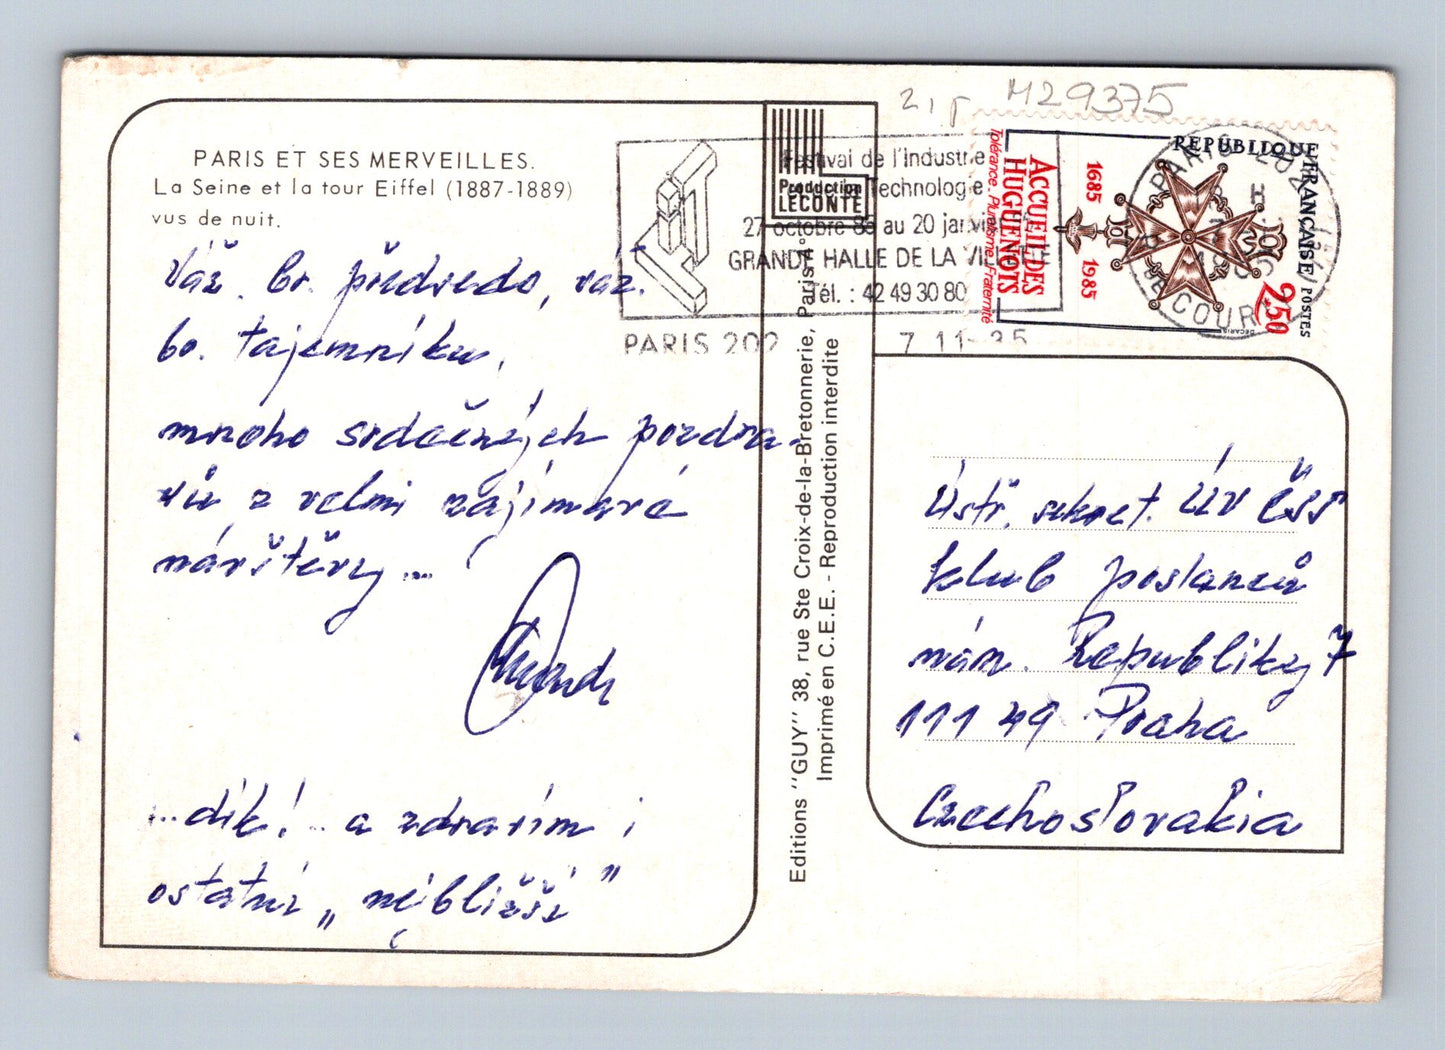 2,5 M29375
PARIS ET SES MERVEILLES.
La Seine et la tour Eiffel (1887-1889)
vus de nuit.
Váž. br. předsedo, váž.
br. tajemníku,
mnoho srdečných pozdra-
vů z velmi zajímavé
návštěvy...
...dík! .. a zdravím i
ostatní „nejbližší"
Production
LECONTE
Editions "GUY" 38, rue Ste Croix-de-la-Bretonnerie, Paris 4°
Imprimé en C.E.E. - Reproduction interdite
Festival de l'Industrie
Technologie
27 octobre 85 au 20 janvier
GRANDE HALLE DE LA VILLETTE
Tél. : 42 49 30 80
PARIS 202
7 11 - 85
ACCUEIL DES
HUGUENOTS
Tolérance. Pluralisme. Fraternité
1685 1985
REPUBLIQUE FRANÇAISE / POSTES
2,50
DECARIS
Ústř. sekret. ÚV ČSS
klub poslanců
nám. Republiky 7
111 49 Praha
Czechoslovakia